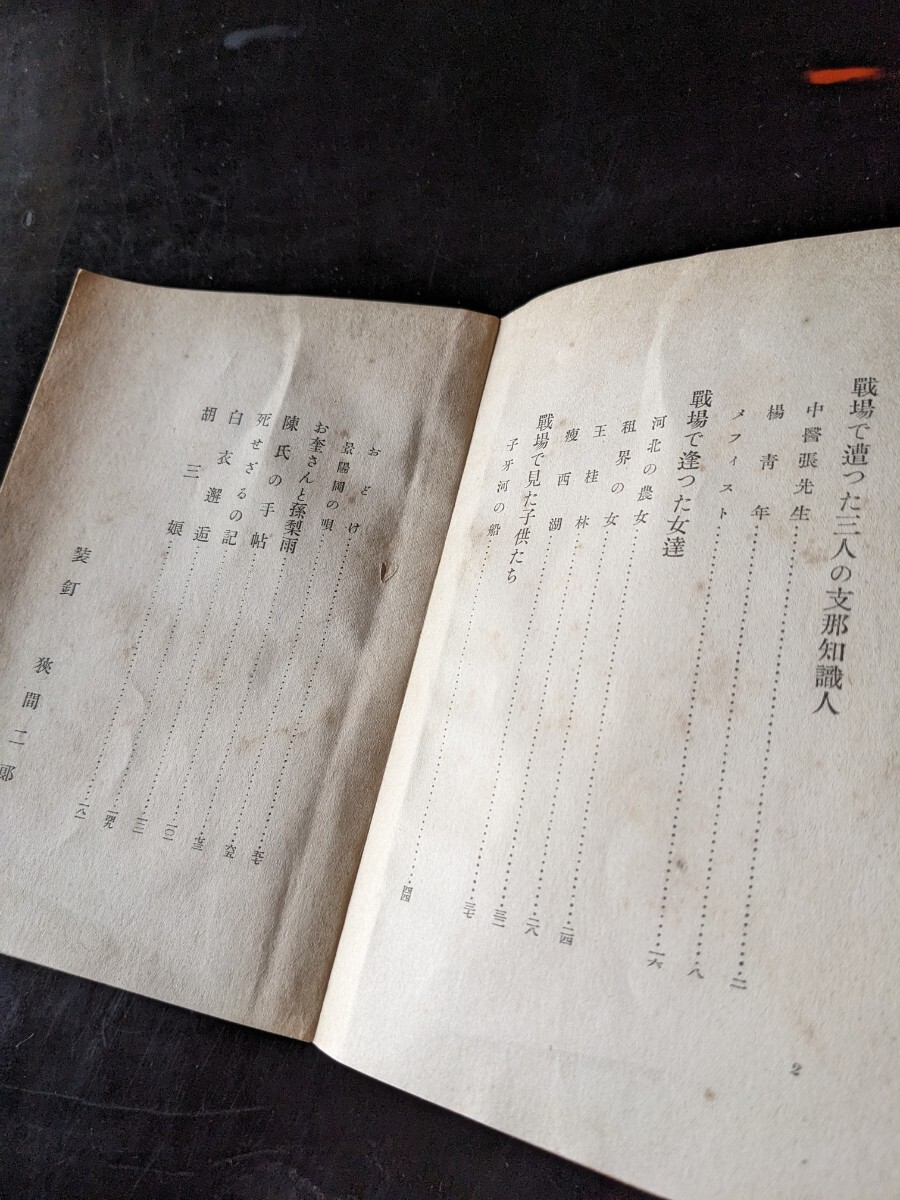 戰場で遭つた三人の支那知識人
中醫張先生……二
楊靑年……八
メフィスト……一六
戰場で逢つた女達
河北の農女……二四
租界の女……二八
王桂林……三二
瘦西湖……三七
戰場で見た子供たち
子牙河の船……四四
2
おどけ……五七
景陽岡の唄……六五
お奎さんと孫梨雨……七三
陳氏の手帖……一〇一
死せざるの記……
白衣邂逅……一四九
胡三娘……一八一
裝釘 狹間二郎